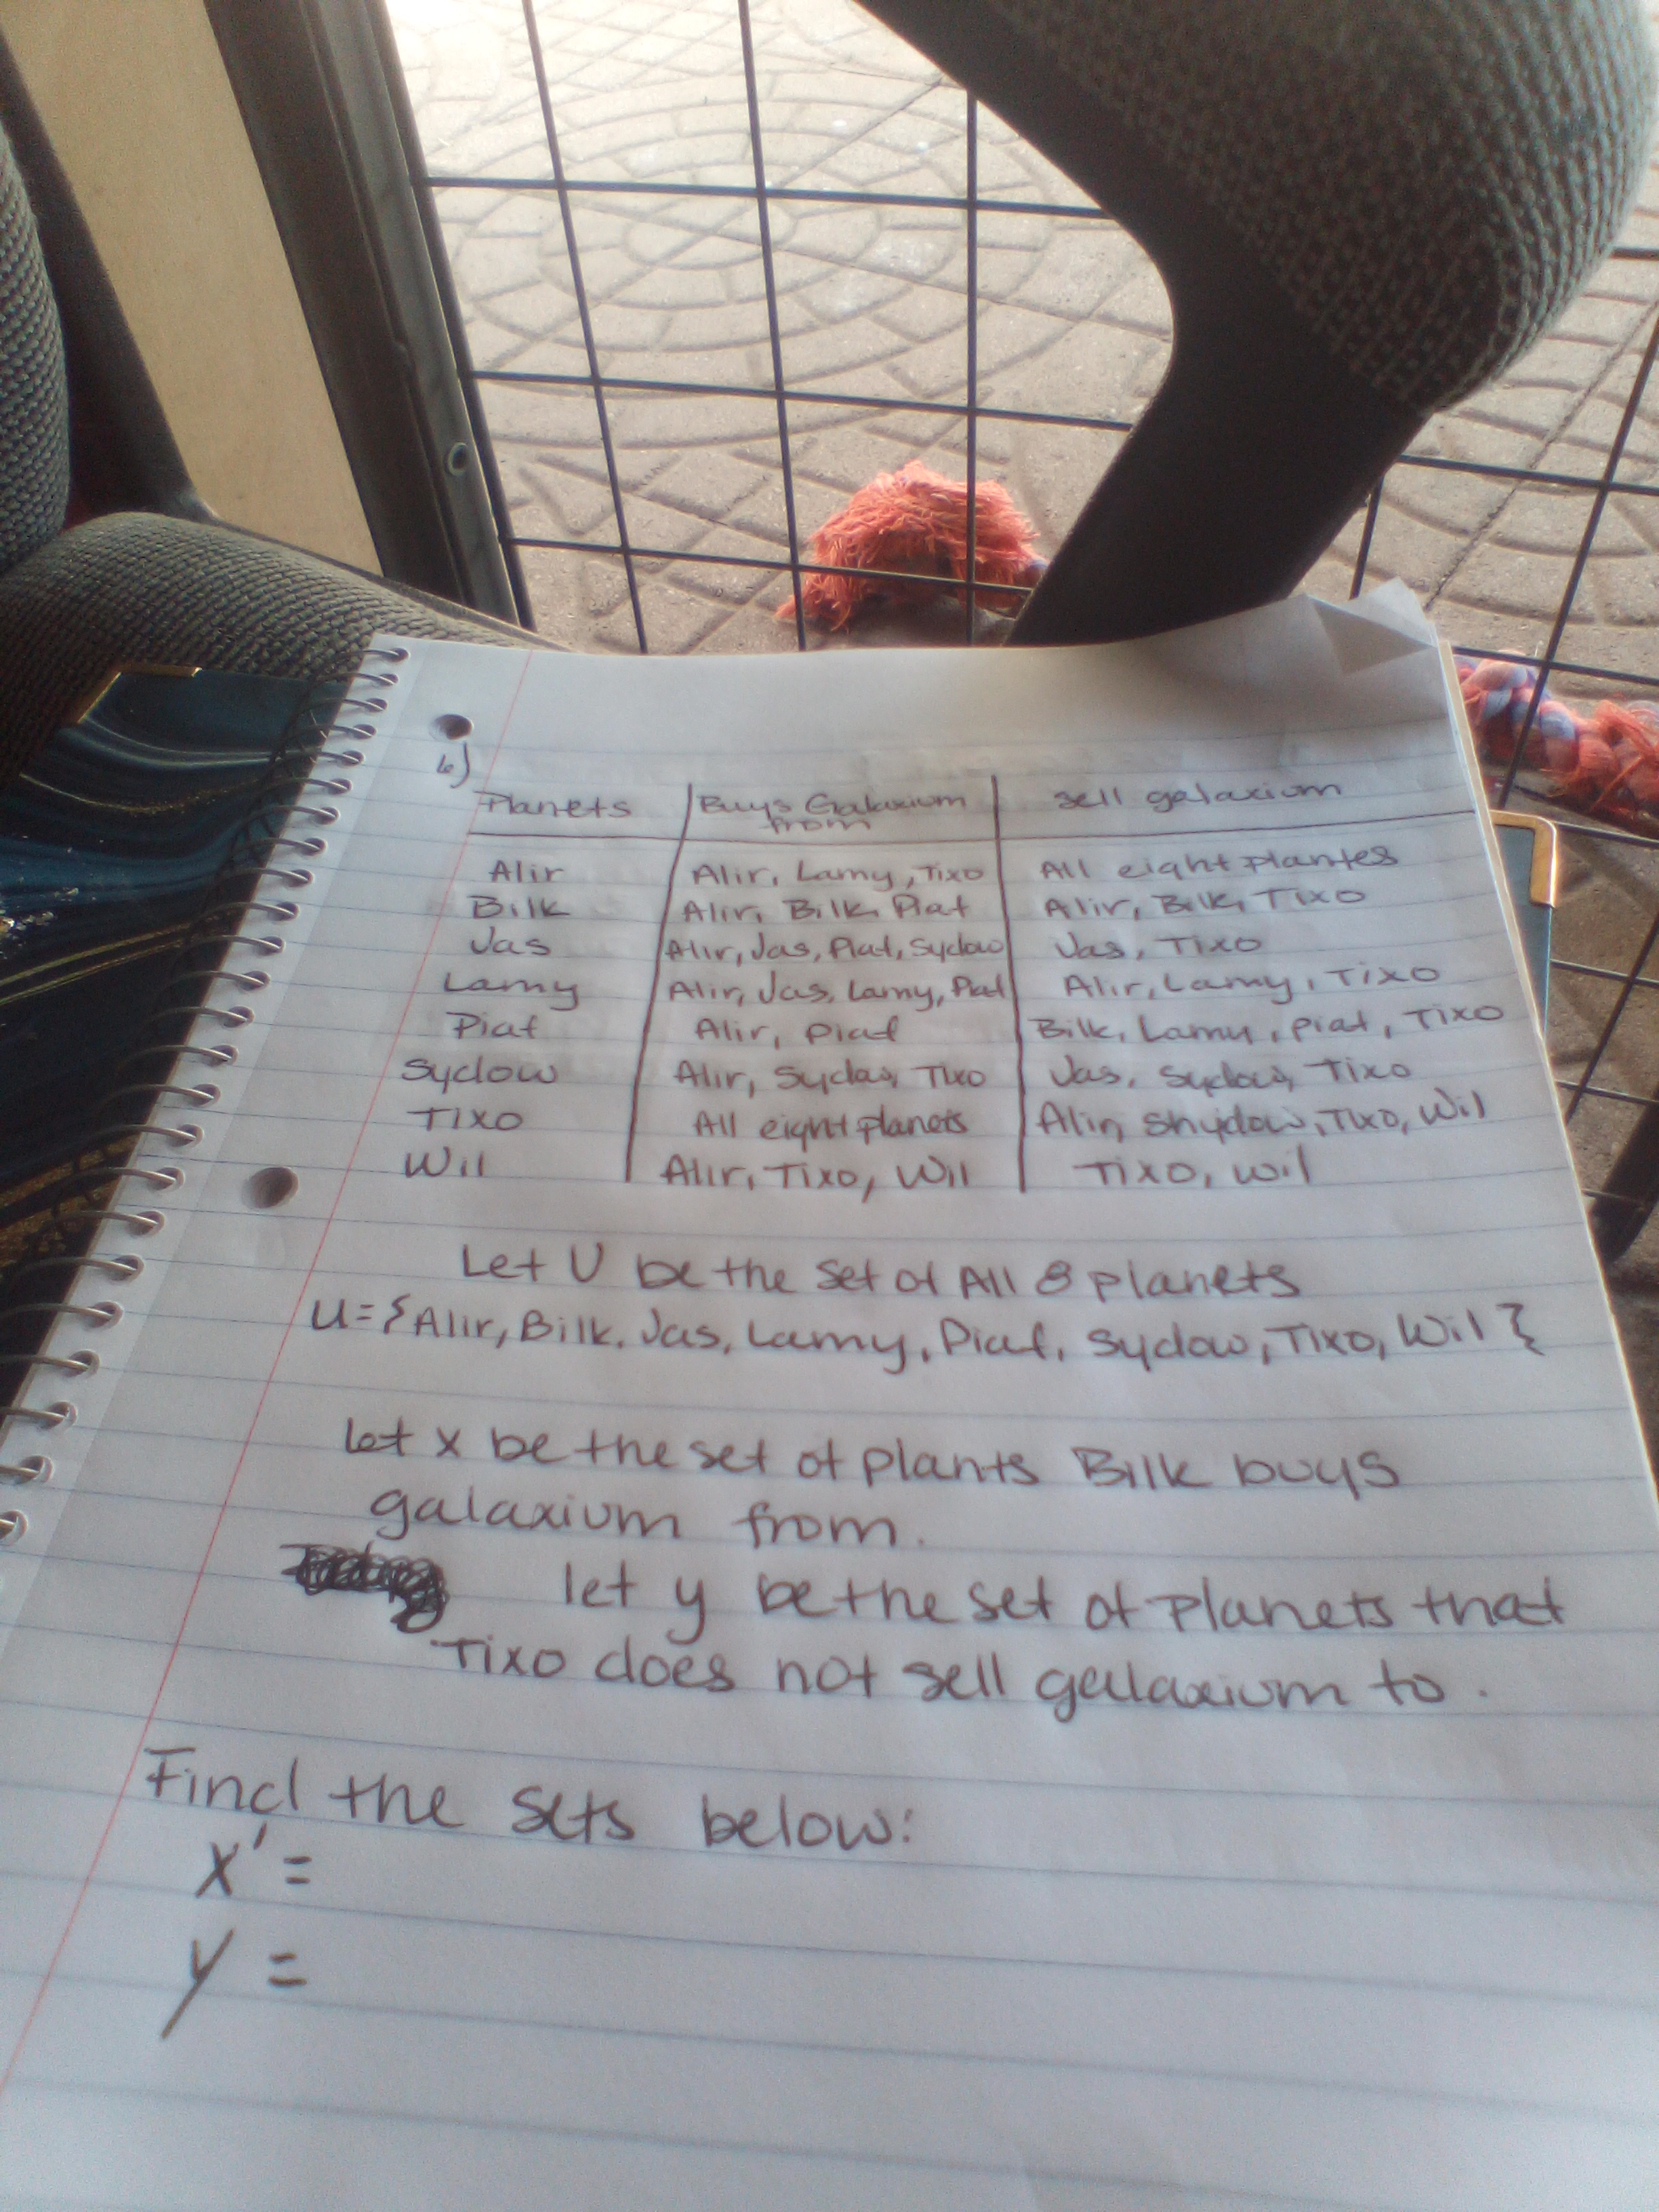 6)
Planets | Buys Galaxium from | Sell galaxium
Alir | Alir, Lamy, Tixo | All eight plantes
Bilk | Alir, Bilk, Piat | Alir, Bilk, Tixo
Jas | Alir, Jas, Piat, Sydow | Jas, Tixo
Lamy | Alir, Jas, Lamy, Piat | Alir, Lamy, Tixo
Piat | Alir, Piat | Bilk, Lamy, Piat, Tixo
Sydow | Alir, Sydow, Tixo | Jas, Sydow, Tixo
Tixo | All eight planets | Alir, Shydow, Tixo, Wil
Wil | Alir, Tixo, Wil | Tixo, Wil
Let U be the set of All 8 planets
U={Alir, Bilk, Jas, Lamy, Piat, Sydow, Tixo, Wil}
Let x be the set of plants Bilk buys
galaxium from.
let y be the set of planets that
Tixo does not sell galaxium to.
Find the sets below:
x' =
y =